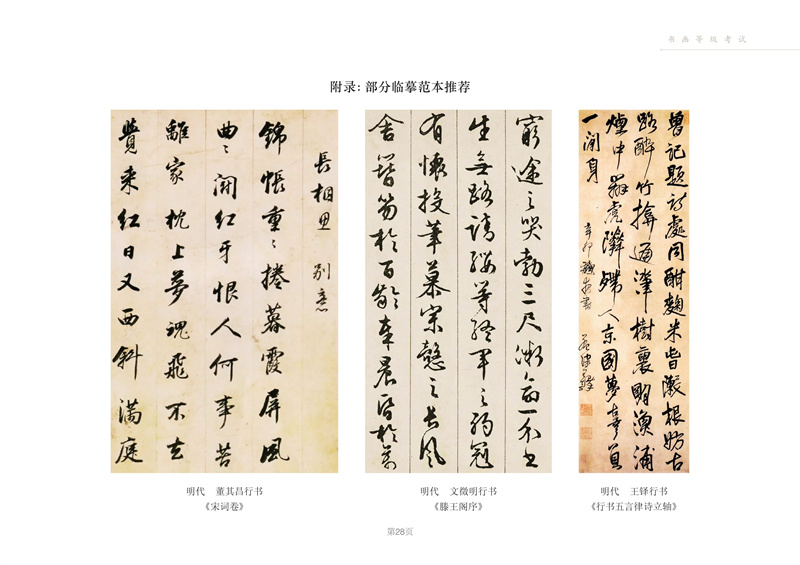 书画等级考试
附录: 部分临摹范本推荐
長相思 别意
錦帳重〻捲暮霞屏風
曲〻闘红牙恨人何事苦
離家枕上夢魂飛不去
覺来红日又西斜满庭
窮途之哭勃三尺微命一介士
生無路請纓等終軍之弱冠
有懷投筆慕宗慤之長風
舍簪笏於百齡奉晨昏於萬
曾記題詩處同酣麴米根妨古
路醉竹通津樹裏明漁浦
煙中辨虎隣殊人京國夢辜負
一閒身
辛卯
明代 董其昌行书
《宋词卷》
明代 文徵明行书
《滕王阁序》
明代 王铎行书
《行书五言律诗立轴》
第28页